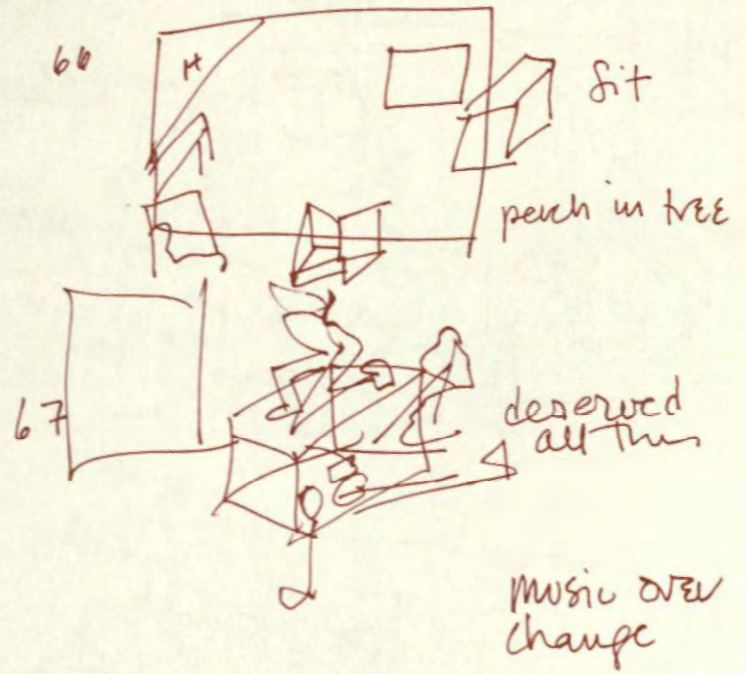 66
H
Sit
perch in tree
67
deserved
all this
music over
change